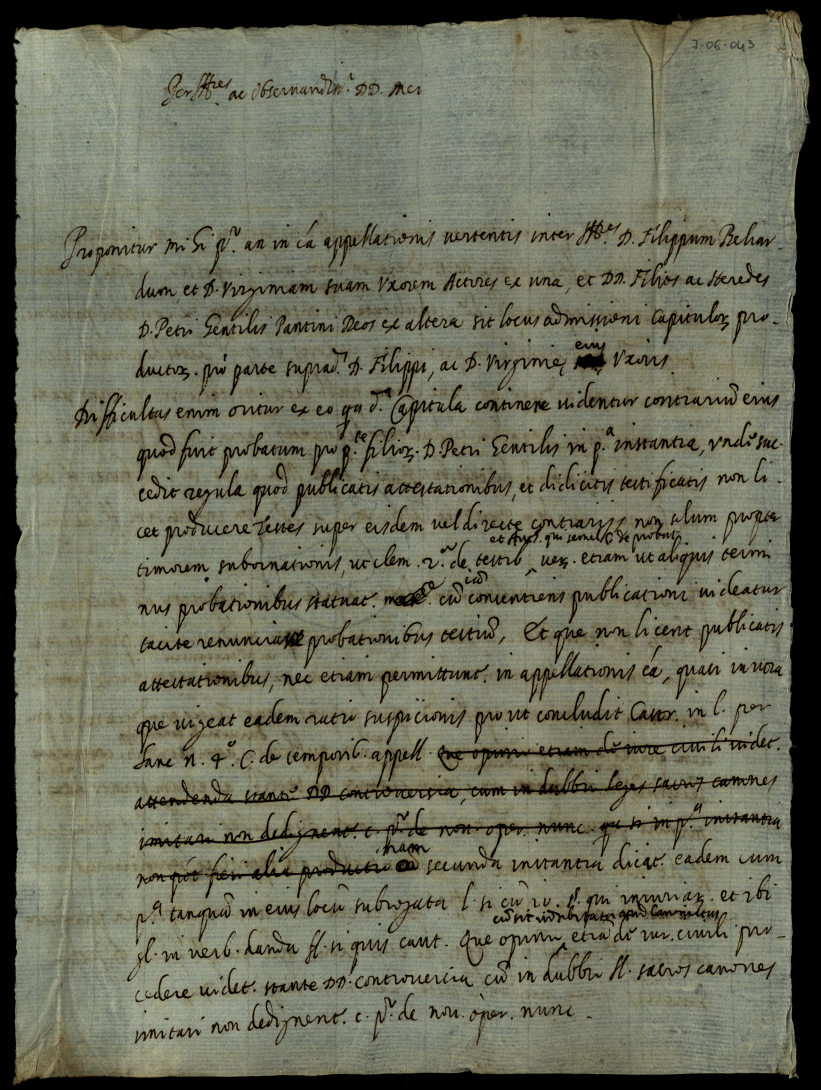 7-06-043
Per Ill.res ac Observandis.i DD. Mei
Proponitur mihi p.r an in cā appellationis vertentis inter Ill.es D. Filippum Beliar-
dum, et D. Virginiam suam Uxorem Actores ex una, et DD. Filios ac Heredes
D. Petri Gentilis Pantini Reos ex altera sit locus admissioni Capitulor, pro-
ductor. prō parte suprad.i D. Filippi, ac D. Virginie, eius Uxoris
Difficultas enim oritur ex eo qa d.a Capitula continere videntur contrariū eius
quod fuit probatum pro p.te filior. D. Petri Gentilis in p.a instantia, unde suc-
cedit regula quod publicatis attestationibus, et didicitis testificatis non li-
cet producere testes super eisdem vel directe contrariis non solum propter
timorem subornationis, ut clem. 2.a de testib. ver. etiam ut aliquis termi
nus probationibus statuat. cū conventiens publicationi videatur
tacite renunciare probationibus testiū, Et que non licent publicatis
attestationibus, nec etiam permittunt. in appellationis cā, quasi in nova
que vigeat eadem ratio suspicionis prout concludit Castr. in l. per
hanc n. 4.o C. de temporib. appell. Que opinio etiam de iure civili videt.
attendenda stante DD controversia, cum in dubbii leges sacros canones
imitari non dedignent. c. p.r de nov. oper. nunc. qa si in p.a instantia
non pot fieri alia productio nam secunda instantia dicat. eadem cum
p.a tanquā in eius locū subrogata l. si cū iv. §. qui iniuriar. et ibi
gl. in verb. danda ff. si quis caut. Que opinio etiā de iur. civili pro-
cedere videt. stante DD. controversia cū in dubbii ll. sacros canones
imitari non dedignent. c. p.r de nov. oper. nunc.